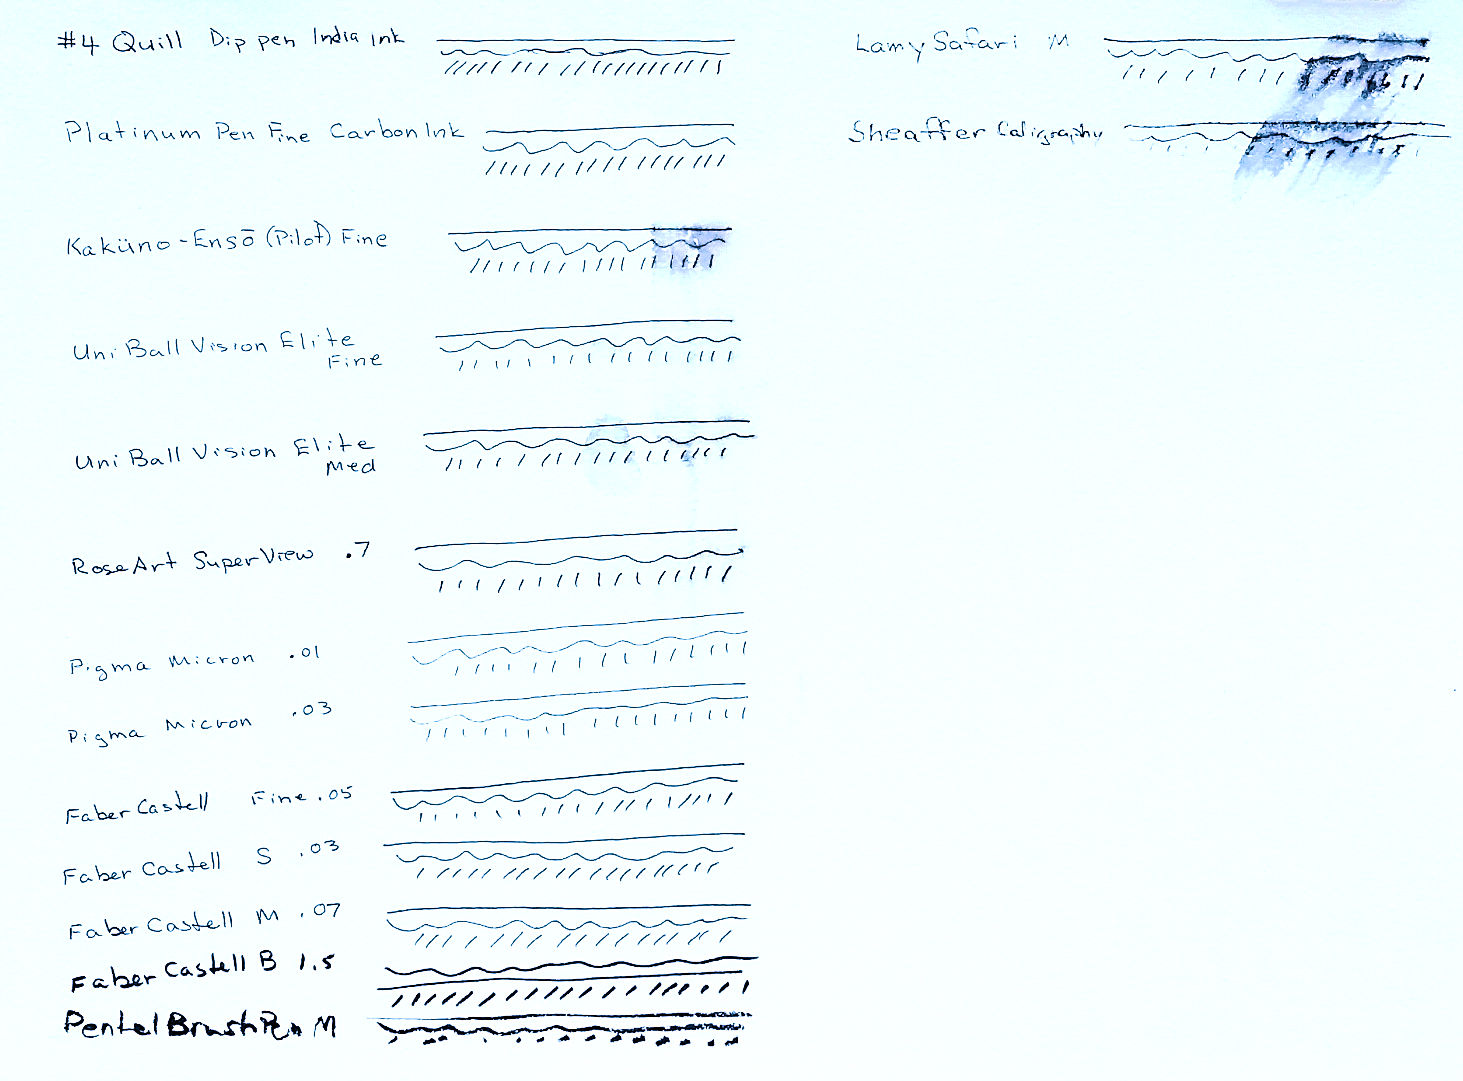 #4 Quill Dip pen India ink
Platinum Pen Fine Carbon Ink
Kaküno - Ensō (Pilot) Fine
Uni Ball Vision Elite
Fine
Uni Ball Vision Elite
Med
RoseArt SuperView .7
Pigma Micron .01
Pigma Micron .03
Faber Castell Fine .05
Faber Castell S .03
Faber Castell M .07
Faber Castell B 1.5
Pentel Brush Pen M
Lamy Safari M
Sheaffer Caligraphy